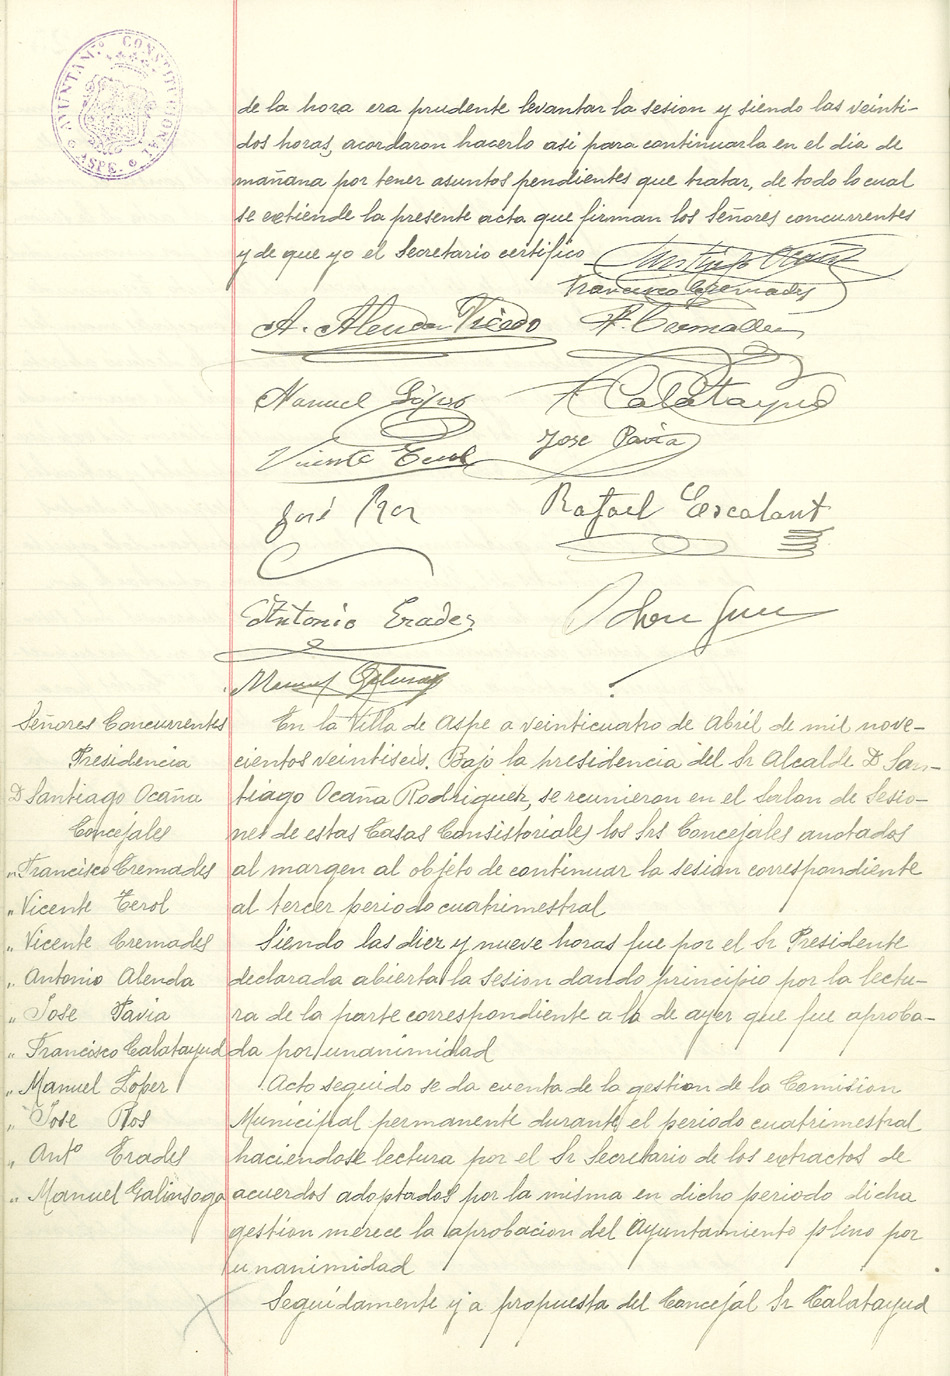 AYUNTAM.º CONSTITUCIONAL ASPE.
de la hora era prudente levantar la sesion y siendo las veinti-
dos horas, acordaron hacerlo asi para continuarla en el dia de
mañana por tener asuntos pendientes que tratar, de todo lo cual
se extiende la presente acta que firman los Señores concurrentes
y de que yo el Secretario certifico
Santiago Ocaña
Francisco Cremades
A. Alenda Vicedo
Manuel López
F Calatayud
Vicente Cerol
Jose Pavia
José Ros
Rafael Escolant
Antonio Erades
Manuel Galinsoga
Señores Concurrentes
Presidencia
D Santiago Ocaña
Concejales
" Francisco Cremades
" Vicente Cerol
" Vicente Cremades
" Antonio Alenda
" Jose Pavia
" Francisco Calatayud
" Manuel Lopez
" Jose Ros
" Antº Erades
" Manuel Galinsoga
En la Villa de Aspe a veinticuatro de Abril de mil nove-
cientos veintiseis. Bajo la presidencia del Sr Alcalde D San-
tiago Ocaña Rodriguez, se reunieron en el Salon de Sesio-
nes de estas Casas Consistoriales los Srs Concejales anotados
al margen al objeto de continuar la sesion correspondiente
al tercer periodo cuatrimestral
Siendo las diez y nueve horas fue por el Sr Presidente
declarada abierta la sesion dando principio por la lectu-
ra de la parte correspondiente a la de ayer que fue aproba-
da por unanimidad
Acto seguido se da cuenta de la gestion de la Comision
Municipal permanente durante el periodo cuatrimestral
haciendose lectura por el Sr Secretario de los extractos de
acuerdos adoptados por la misma en dicho periodo dicha
gestion merece la aprobacion del Ayuntamiento pleno por
unanimidad
Seguidamente y a propuesta del Concejal Sr Calatayud